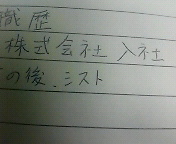 職歴
株式会社 入社
の後、ミスト